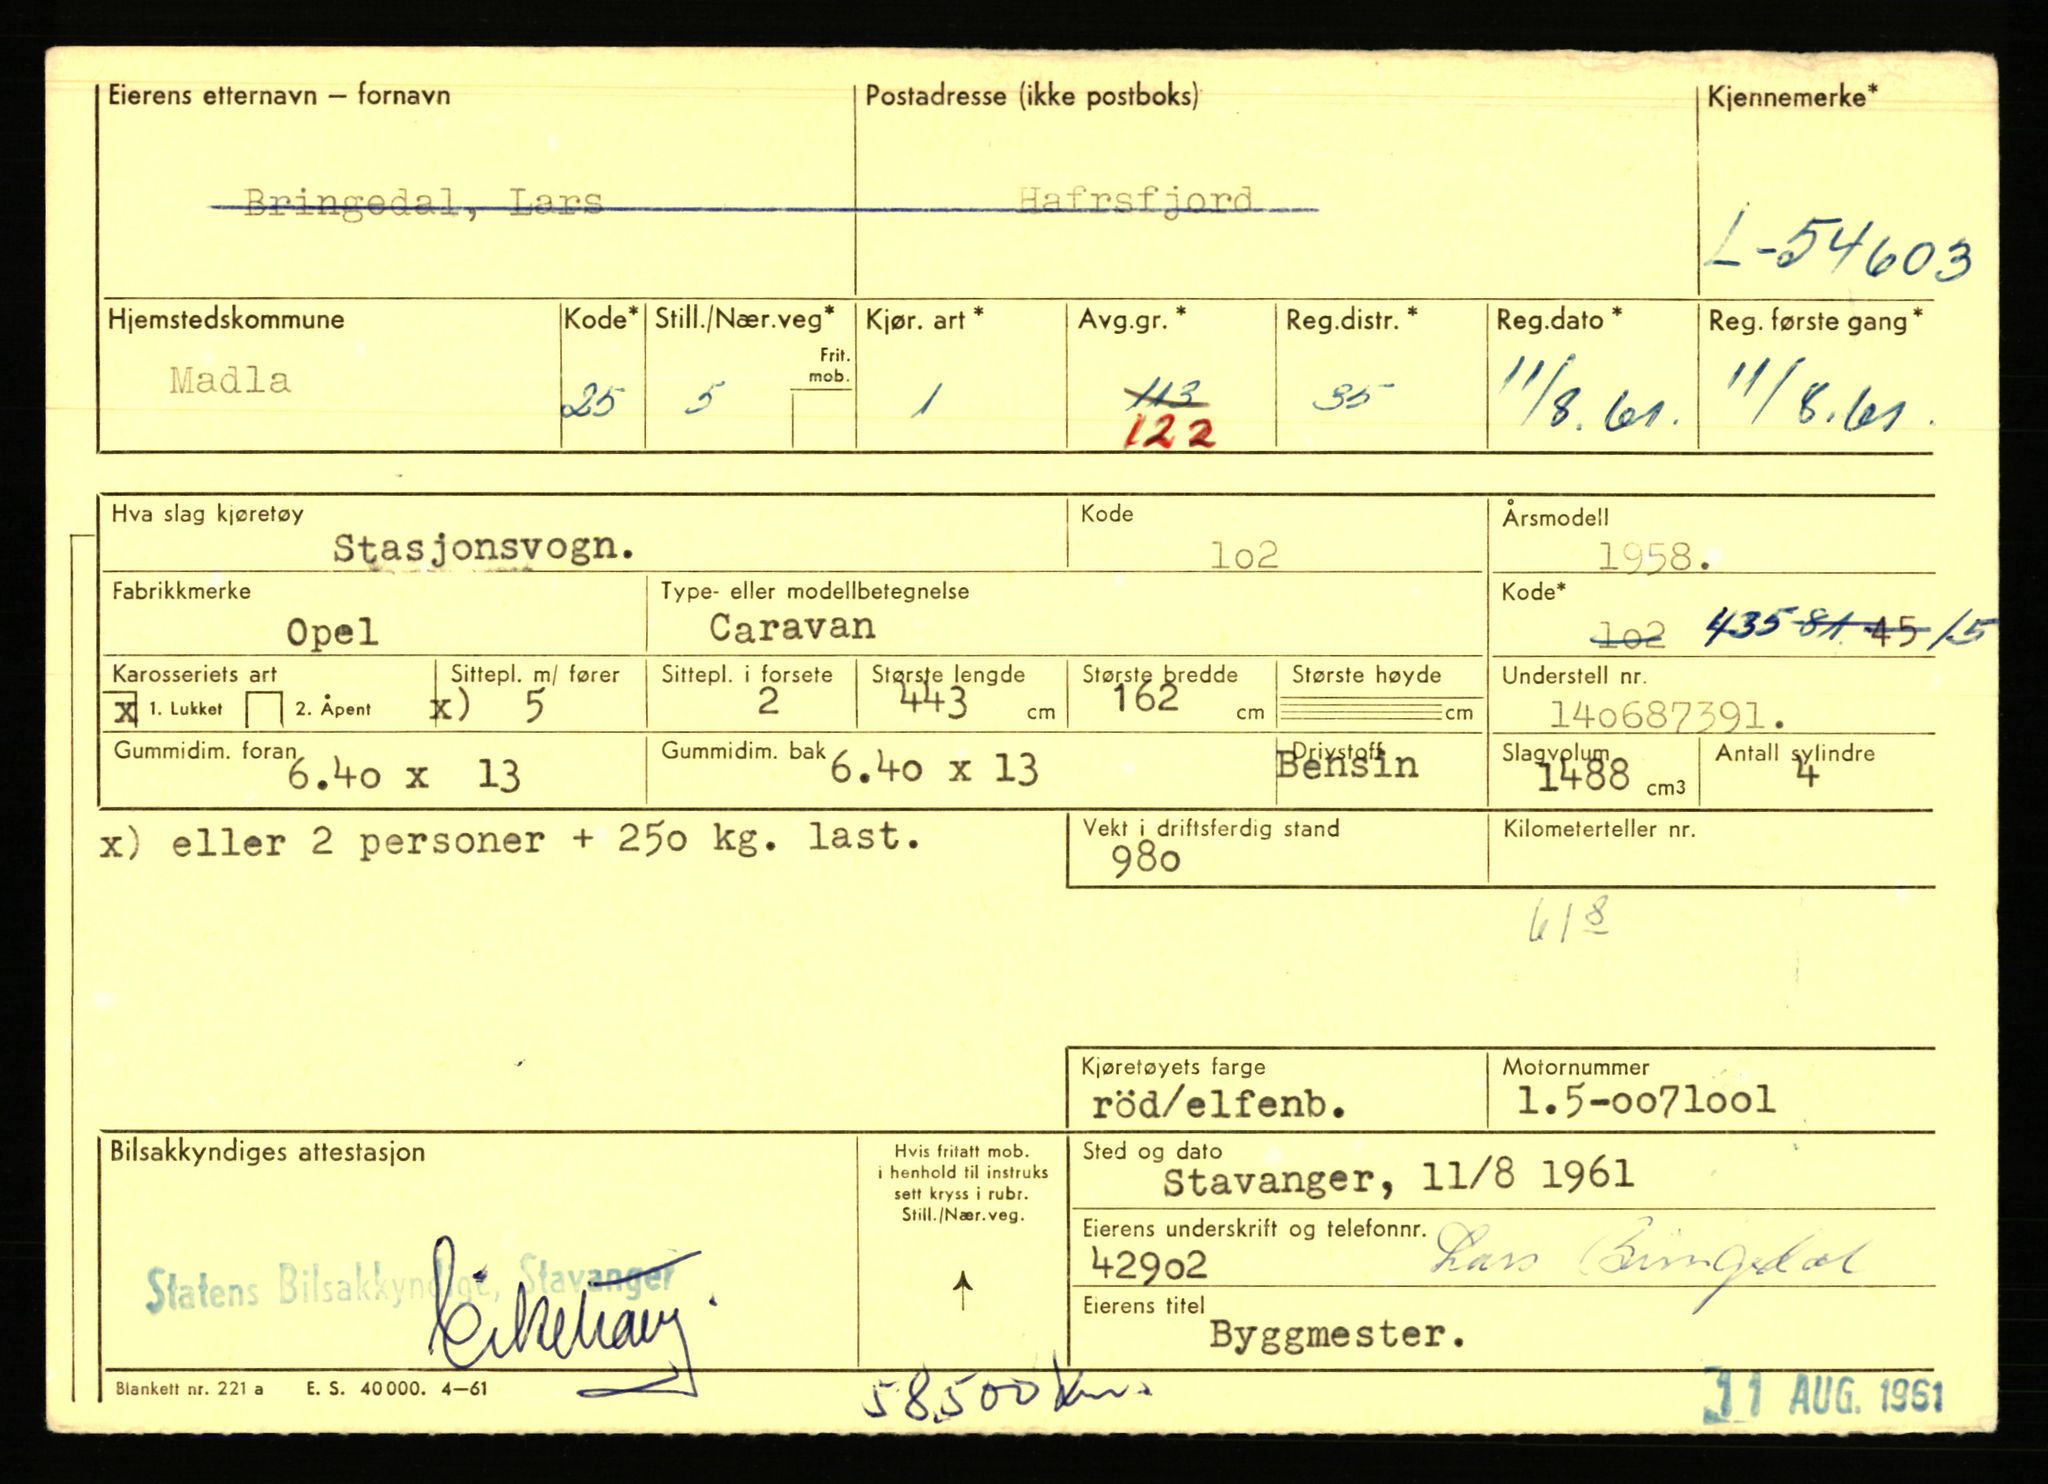 Eierens etternavn – fornavn Postadresse (ikke postboks) Kjennemerke*
Bringedal, Lars Hafrsfjord
L-54603
Hjemstedskommune Kode* Still./Nær.veg* Kjør. art* Avg.gr.* Reg.distr.* Reg.dato* Reg. første gang*
Frit.
mob.
Madla 25 5 1 113 35 11/8.61. 11/8.61.
122
Hva slag kjøretøy Kode Årsmodell
Stasjonsvogn. 1o2 1958.
Fabrikkmerke Type- eller modellbetegnelse Kode*
Opel Caravan 1o2 435 81 45/15
Karosseriets art Sittepl. m/ fører Sittepl. i forsete Største lengde Største bredde Største høyde Understell nr.
x 1. Lukket 2. Åpent x) 5 2 443 cm 162 cm cm 14o687391.
Gummidim. foran Gummidim. bak Drivstoff Slagvolum Antall sylindre
6.4o x 13 6.4o x 13 Bensin 1488 cm3 4
x) eller 2 personer + 25o kg. last.
Vekt i driftsferdig stand Kilometerteller nr.
98o
61 8
Kjøretøyets farge Motornummer
röd/elfenb. 1.5-oo71oo1
Bilsakkyndiges attestasjon
Hvis fritatt mob.
i henhold til instruks
sett kryss i rubr.
Still./Nær.veg.
Sted og dato
Stavanger, 11/8 1961
Eierens underskrift og telefonnr.
429o2 Lars Bringedal
Statens Bilsakkyndige, Stavanger
Eierens titel
Byggmester.
Blankett nr. 221 a E. S. 40 000. 4–61
58.500 km.
11 AUG. 1961